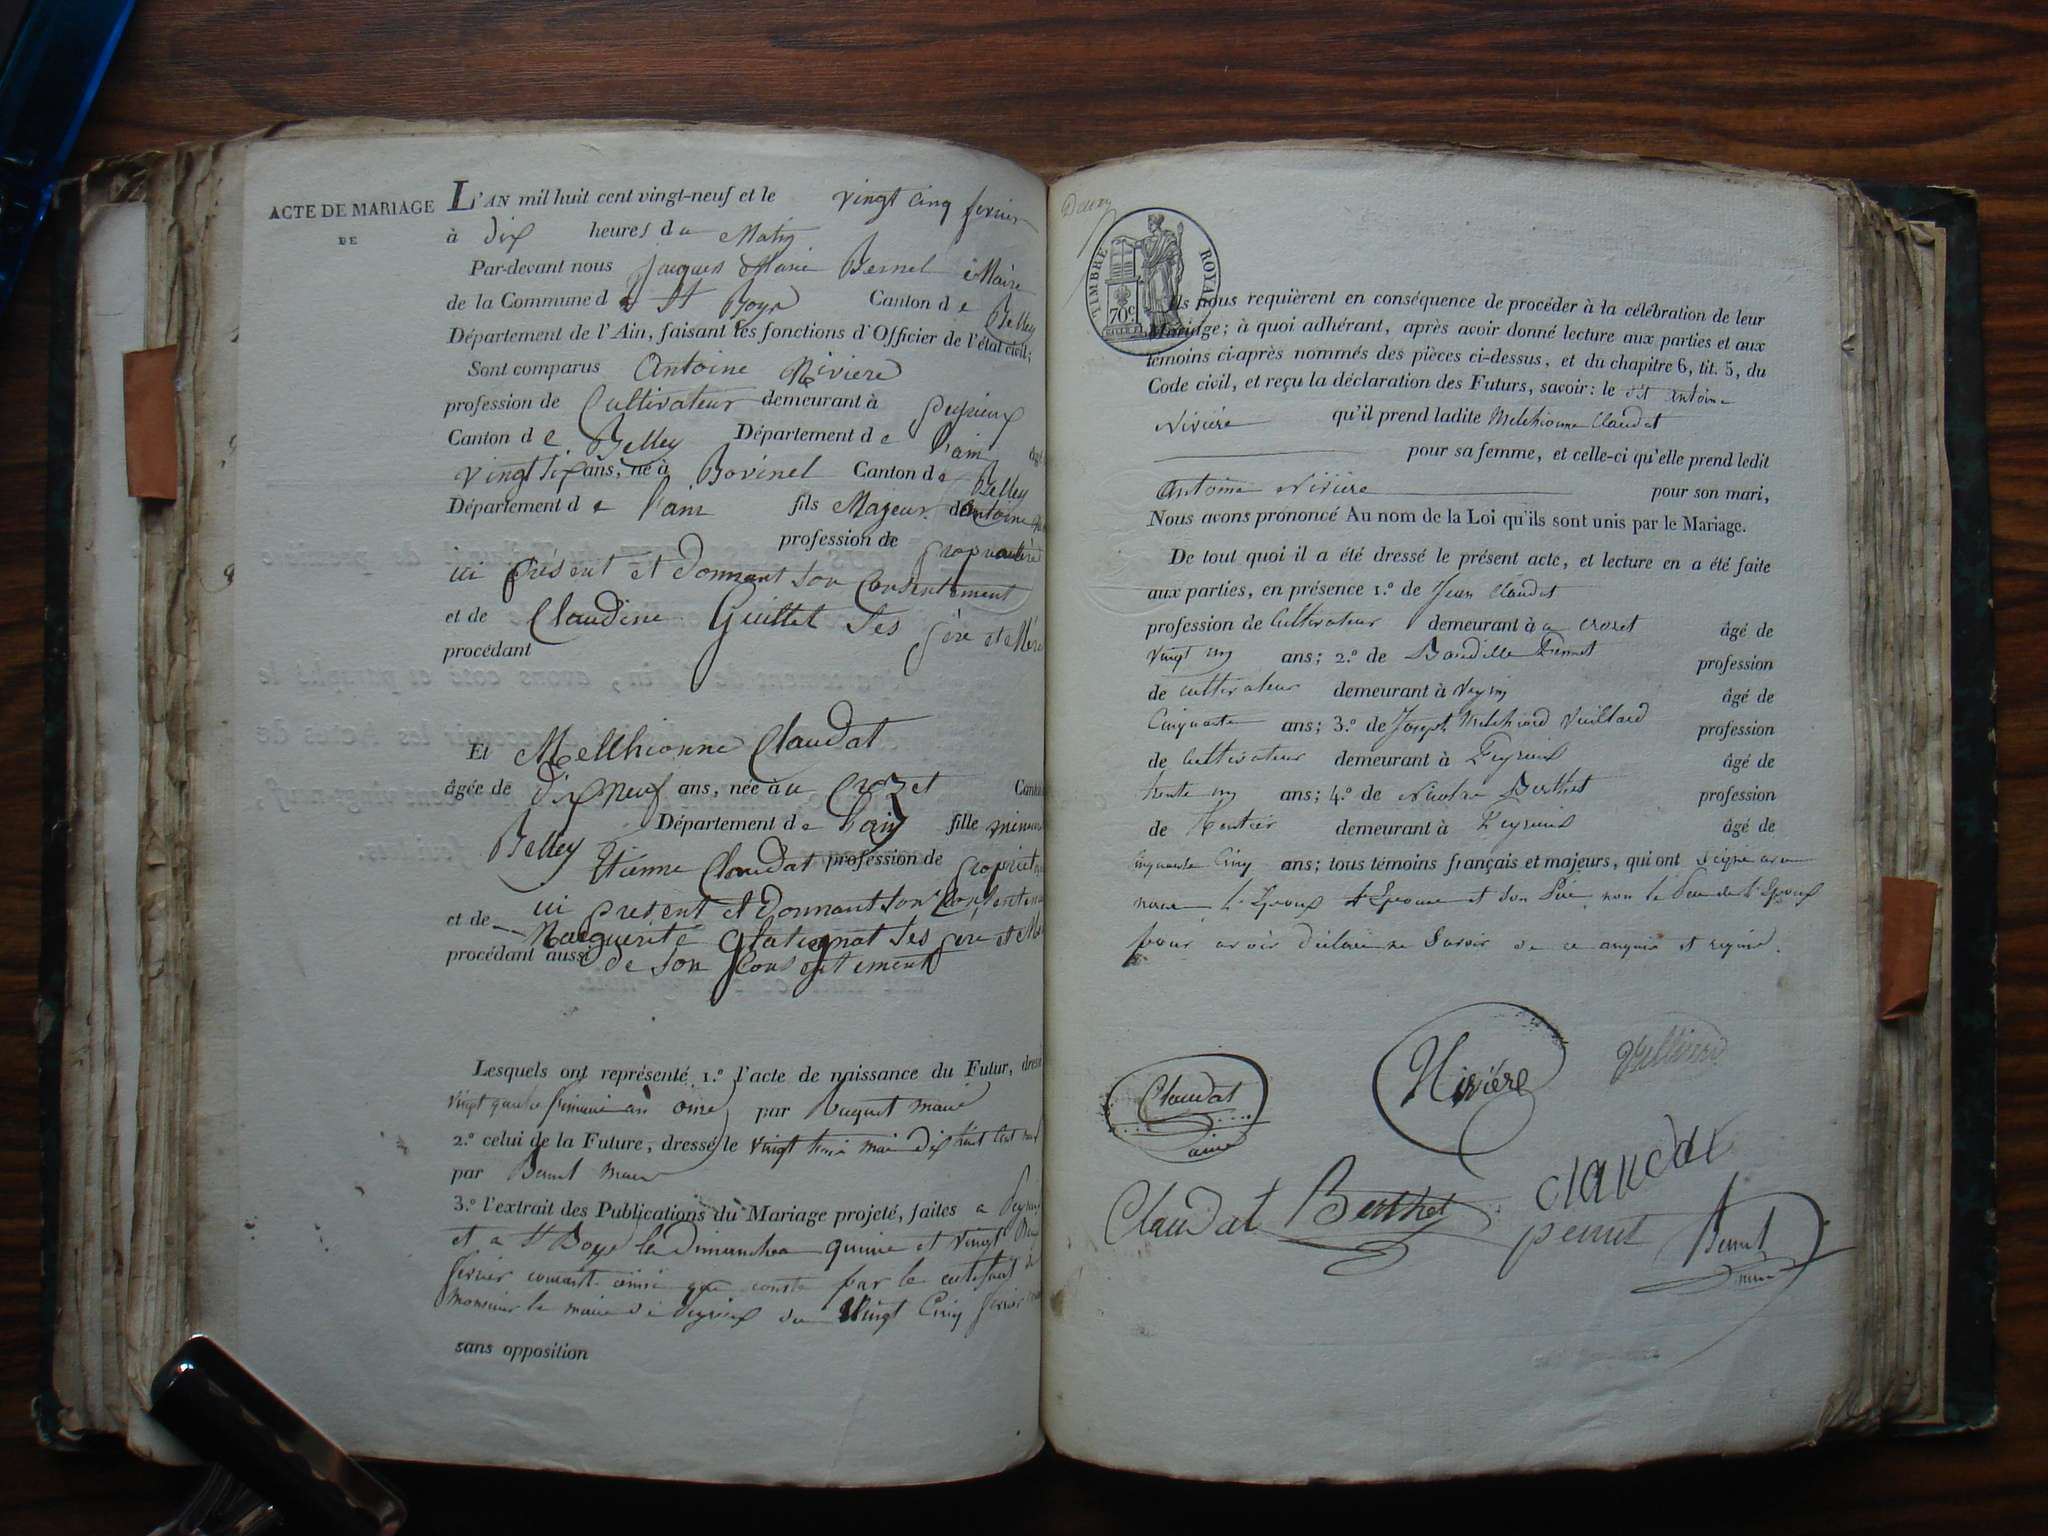 ACTE DE MARIAGE
DE
L'AN mil huit cent vingt-neuf et le vingt cinq fevrier
à dix heures du Matin
Par-devant nous Jacques Marie Bernel Maire
de la Commune de St Boys Canton de Belley
Département de l'Ain, faisant les fonctions d'Officier de l'état civil;
Sont comparus Antoine Riviere
profession de Cultivateur demeurant à Peyrieux
Canton de Belley Département de l'ain
vingt six ans, né à Bovinel Canton de Belley
Département de l'ain fils Majeur d'Antoine
profession de propriétaire
ici présent et donnant son Consentement
et de Claudine Guillet ses père et Mère
procédant
Et Mellhionne Claudat
âgée de dix neuf ans, née au Crozet Canton
Belley Département de l'ain fille mineure
Etienne Claudat profession de propriet
ici présent et donnant son Consentem
et de Marguerite Glatignat ses père et Mère
procédant aussi de son Consentement
Lesquels ont représenté 1.º l'acte de naissance du Futur, dressé
vingt quatre frimaire an onze par Buquet maire
2.º celui de la Future, dressé le vingt trois mai dix huit cent neuf
par Bernel maire
3.º l'extrait des Publications du Mariage projeté, faites a Peyrieu
et a St Boys le Dimanches quinze et vingt deux
fevrier courant ainsi que conste par le certificat de
Monsieur le maire de Peyrieux du Vingt Cinq fevrier
sans opposition
TIMBRE ROYAL
70c
Ils nous requièrent en conséquence de procéder à la célébration de leur
Mariage; à quoi adhérant, après avoir donné lecture aux parties et aux
témoins ci-après nommés des pièces ci-dessus, et du chapitre 6, tit. 5, du
Code civil, et reçu la déclaration des Futurs, savoir: le dit Antoine
Riviére qu'il prend ladite Melchionne Claudat
pour sa femme, et celle-ci qu'elle prend ledit
Antoine Riviére pour son mari,
Nous avons prononcé Au nom de la Loi qu'ils sont unis par le Mariage.
De tout quoi il a été dressé le présent acte, et lecture en a été faite
aux parties, en présence 1.º de Jean Claudat
profession de Cultivateur demeurant à au crozet âgé de
vingt un ans; 2.º de Baudille Pernet profession
de cultivateur demeurant à Veyrin âgé de
Cinquante ans; 3.º de Joseph Melchiord Vuillard profession
de Cultivateur demeurant à Peyrieux âgé de
trente un ans; 4.º de Nicolas Berthet profession
de Rentier demeurant à Peyrieux âgé de
cinquante Cinq ans; tous témoins français et majeurs, qui ont signé avec
nous L'Epoux l'Epouse et son Père non le Père de l'Epoux
pour avoir déclaré ne Savoir de ce enquis et requis.
Claudat
Riviére
Claudat Berthet
claudat
pernet
Bernel
maire